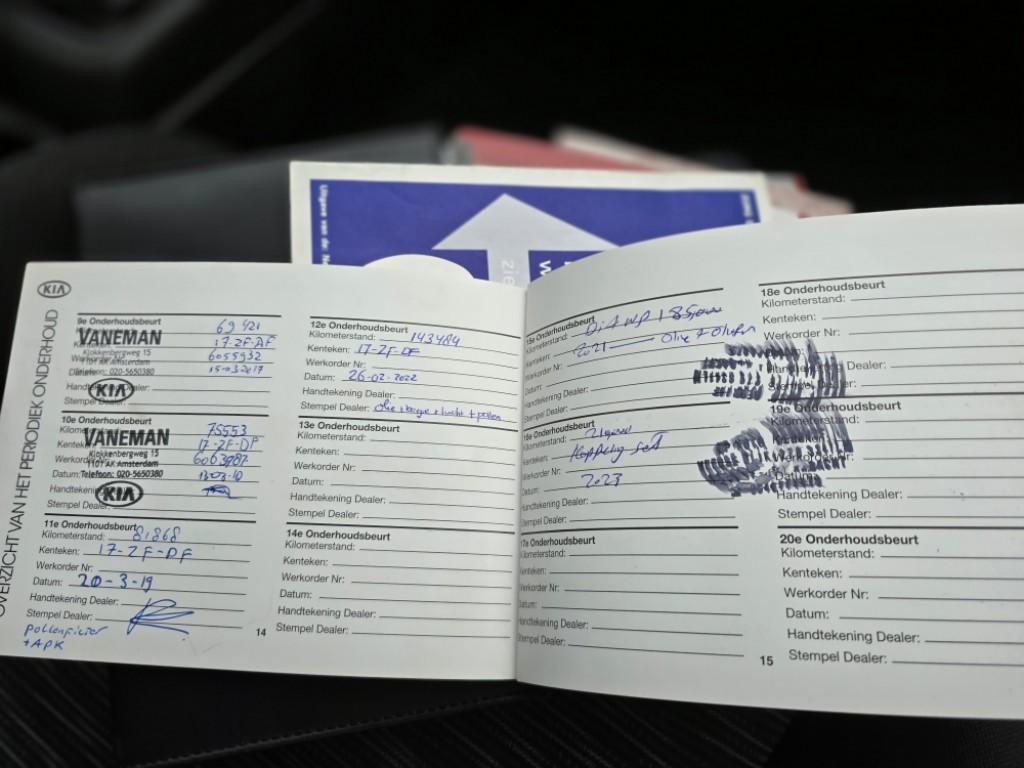 Uitgave van de
KIA
OVERZICHT VAN HET PERIODIEK ONDERHOUD
9e Onderhoudsbeurt
69 421
VANEMAN
17-ZF-
Klokkenbergweg 15
6055932
1101 AK Amsterdam
Telefoon: 020-5650380
Handtekening Dealer:
KIA
Stempel Dealer:
10e Onderhoudsbeurt
75553
VANEMAN
17-ZF-DF
Klokkenbergweg 15
6063987
1101 AK Amsterdam
Datum:
Telefoon: 020-5650380
Handtekening
KIA
Stempel Dealer:
11e Onderhoudsbeurt
Kilometerstand: 81868
Kenteken: 17-ZF-DF
Werkorder Nr:
Datum: 20-3-19
Handtekening Dealer:
Stempel Dealer:
pollenfilter
+ APK
12e Onderhoudsbeurt
Kilometerstand: 143484
Kenteken: 17-ZF-DF
Werkorder Nr:
Datum: 26-02-2022
Handtekening Dealer:
Stempel Dealer: olie + lucht + pollen
13e Onderhoudsbeurt
Kilometerstand:
Kenteken:
Werkorder Nr:
Datum:
Handtekening Dealer:
Stempel Dealer:
14e Onderhoudsbeurt
Kilometerstand:
Kenteken:
Werkorder Nr:
Datum:
Handtekening Dealer:
Stempel Dealer:
14
15e Onderhoudsbeurt
Kilometerstand:
Kenteken: 2021 Olie +
Werkorder Nr:
Datum:
Handtekening Dealer:
Stempel Dealer:
16e Onderhoudsbeurt
Kilometerstand:
Kenteken: Koppeling set
Werkorder Nr:
Datum: 2023
Handtekening Dealer:
Stempel Dealer:
17e Onderhoudsbeurt
Kilometerstand:
Kenteken:
Werkorder Nr:
Datum:
Handtekening Dealer:
Stempel Dealer:
18e Onderhoudsbeurt
Kilometerstand:
Kenteken:
Werkorder Nr:
Dealer:
Stempel Dealer:
19e Onderhoudsbeurt
Kilometerstand:
Kenteken:
Werkorder Nr:
Datum:
Handtekening Dealer:
Stempel Dealer:
20e Onderhoudsbeurt
Kilometerstand:
Kenteken:
Werkorder Nr:
Datum:
Handtekening Dealer:
Stempel Dealer:
15